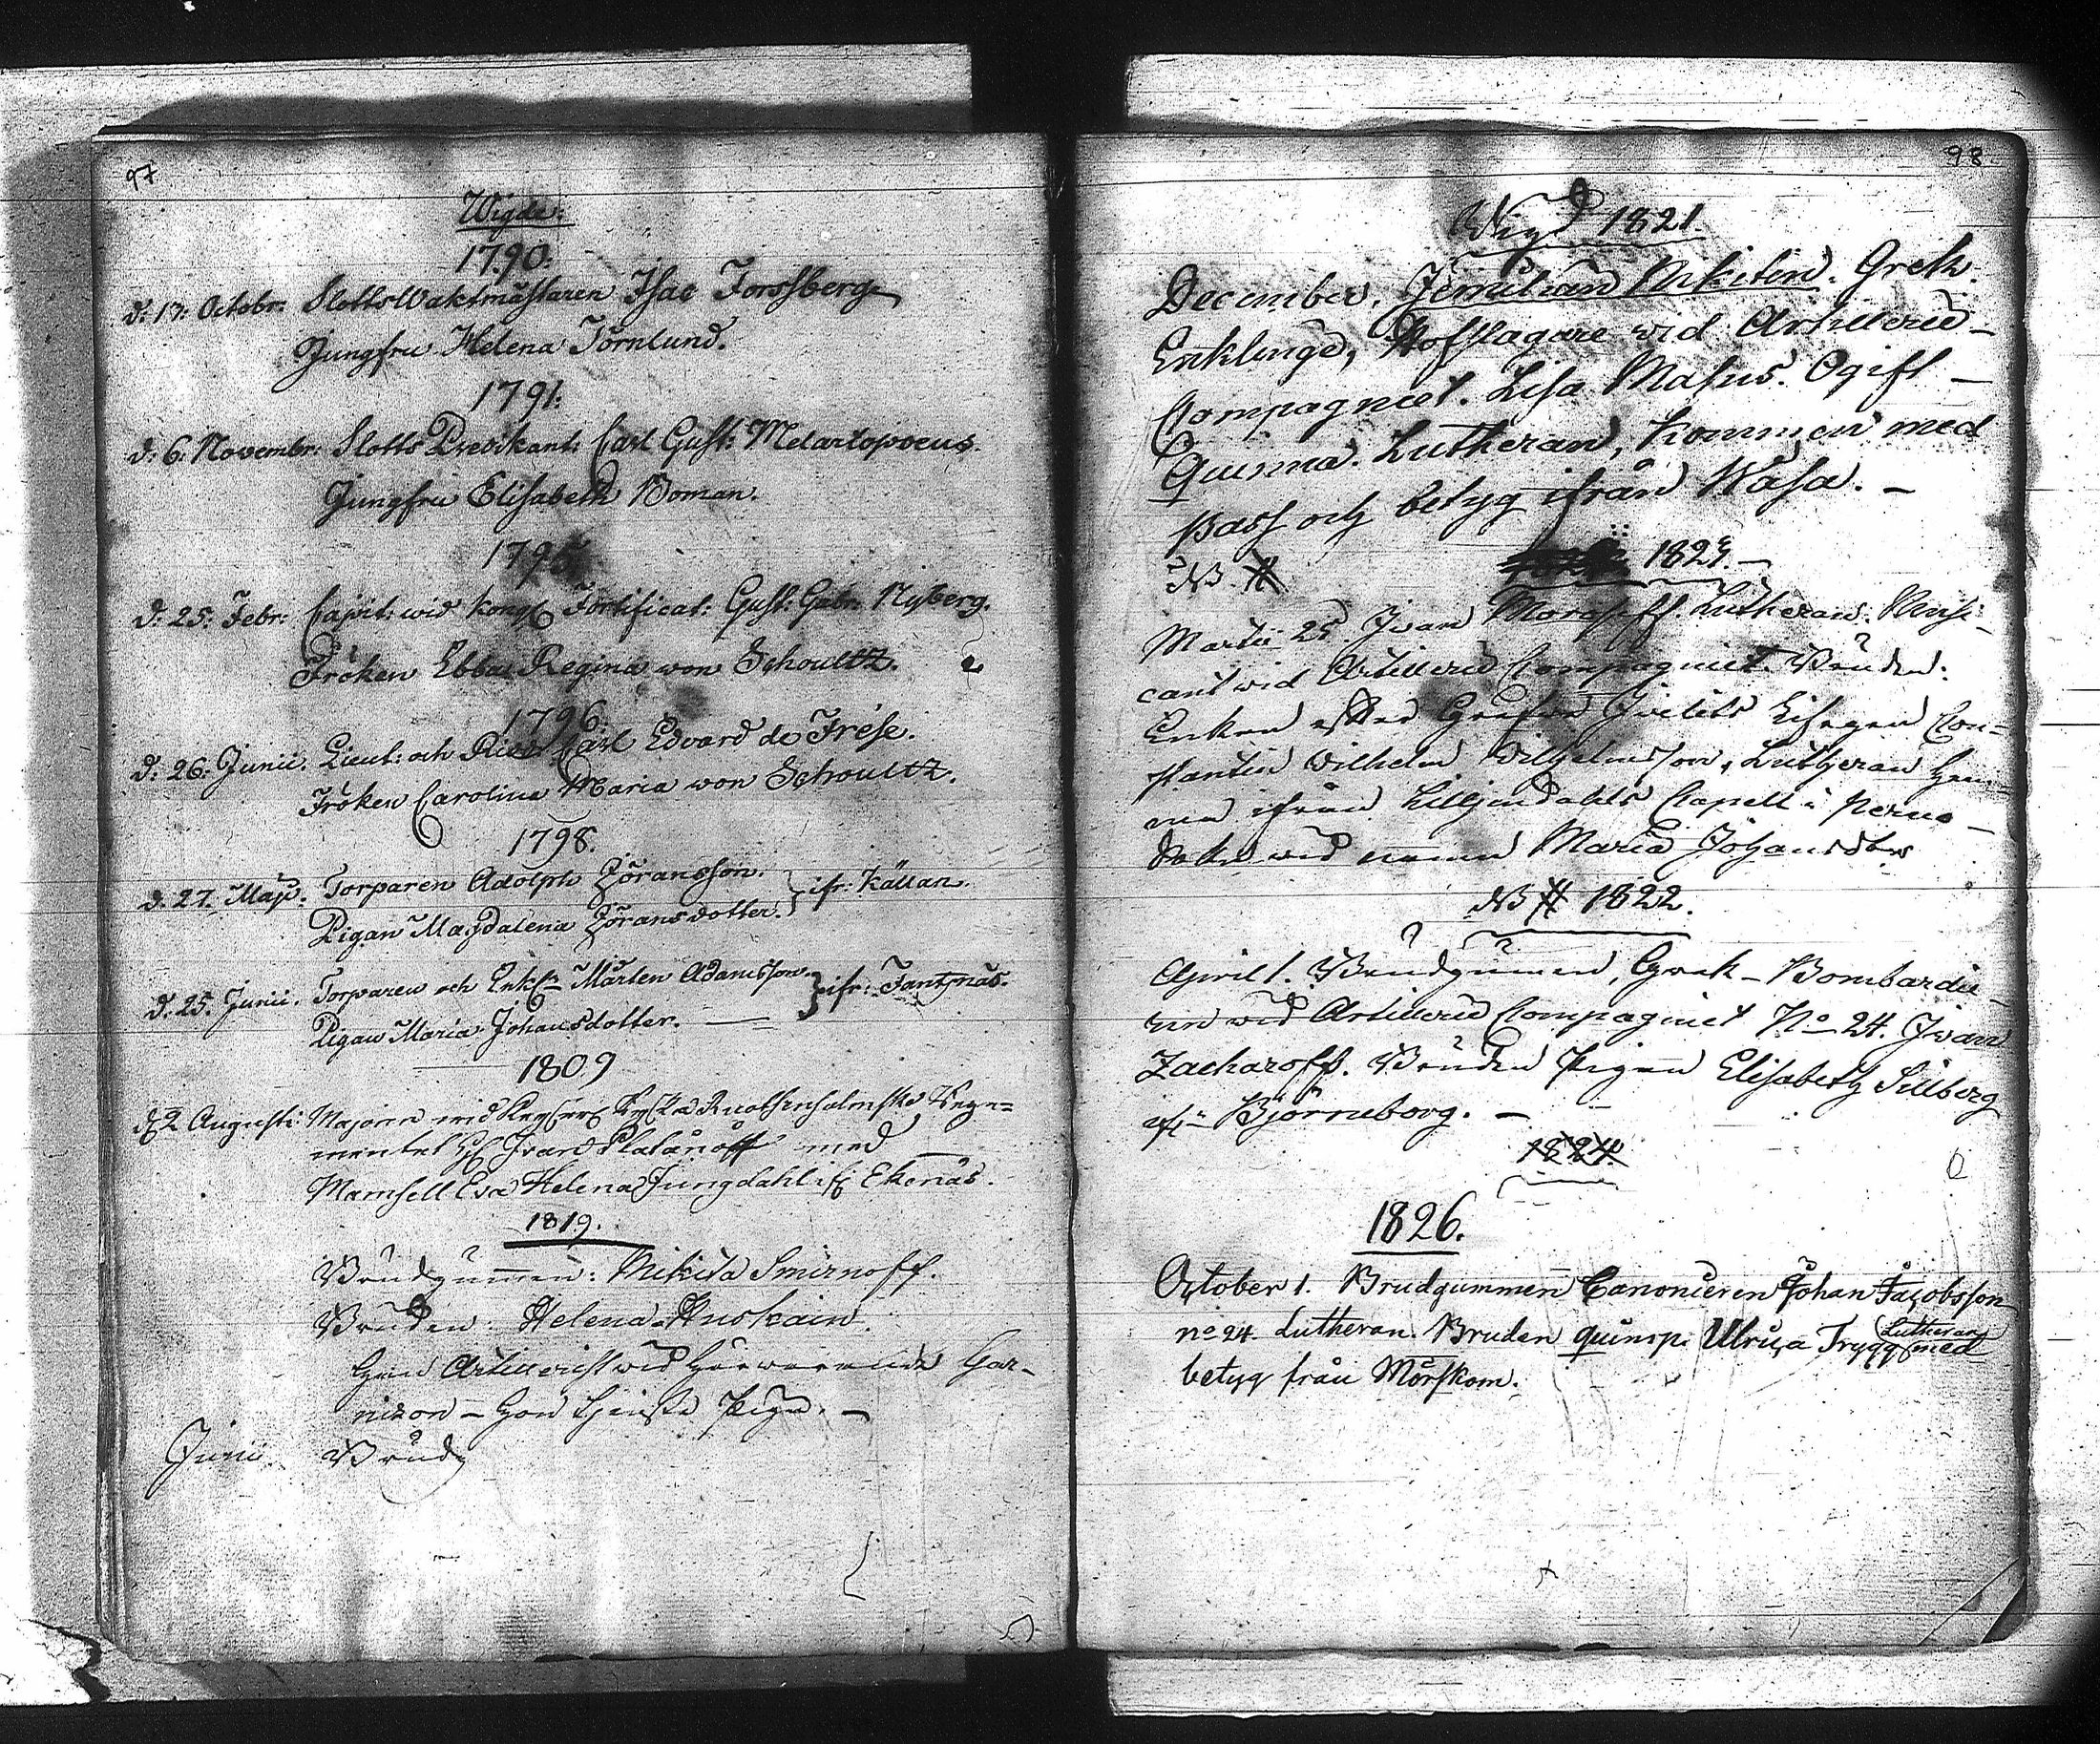 97
Wigde.
1790.
d: 17: Octobr. Slotts Waktmästaren Isac Forssberg
Jungfru Helena Törnlund.
1791:
d: 6: Novembr: Slotts Predikant: Carl Gust: Metartopoeus.
Jungfru Elisabeth Boman.
1795
d: 25: Febr: Capit: wid Kongl Fortificat: Gust: Gabr: Nyberg.
Fröken Ebba Regina von Schoultz.
1796.
d: 26: Junii. Lieut: och Carl Edvard de Frése.
Fröken Carolina Maria von Schoultz.
1798.
d. 27. Maji. Torparen Adolph Göransson. } ifr: Källan.
Pigan Magdalena Göransdotter.
d. 25. Junii. Torparen och Enkl: Mårten Adamsson } ifr: Tantnäs.
Pigan Maria Johansdotter. —
1809
d 2 Augusti Majoren wid Rege=
mentet H Ivan Platanoff med
Mamsell Eva Helena Ljungdahl ifr Ekenäs.
1819.
Brudgummen: Mikita Smirnoff.
Bruden: Helena Huskain
Han Artillerist wid härwarande Gar-
nizon – Hon tjenste Piga. —
Junii Brudg
98
Wigd 1821.
December. Nikitin. Grek.
Enkling, Hofslagare wid Artillerie-
Compagniet. Lisa Ogift —
Qvinna. Lutheran, kommen med
Pass och betyg ifrån Wasa. —
NB #
1823. —
Martii 25. Ivan Lutheran. Musi-
cant wid Artillerie Compagniet. Bruden:
Enkan efter Con-
stantin Wilhelm Wilhelmsson, Lutheran
ifrån Liljendahls Capell i Perno
wid namn Maria Johansdter
NB # 1822.
April 1. Brudgummen, Grek – Bombardie-
ren wid Artillerie Compagniet No 24. Ivan
Zacharoff. Bruden Pigan Elisabeth Sillberg
ifr Björneborg. —
1824.
1826.
October 1. Brudgummen Canonieren Johan Jacobsson
no 24 Lutheran. Bruden qvinsp. Ulrica Trygg Lutheran med
betyg från Mörskom.